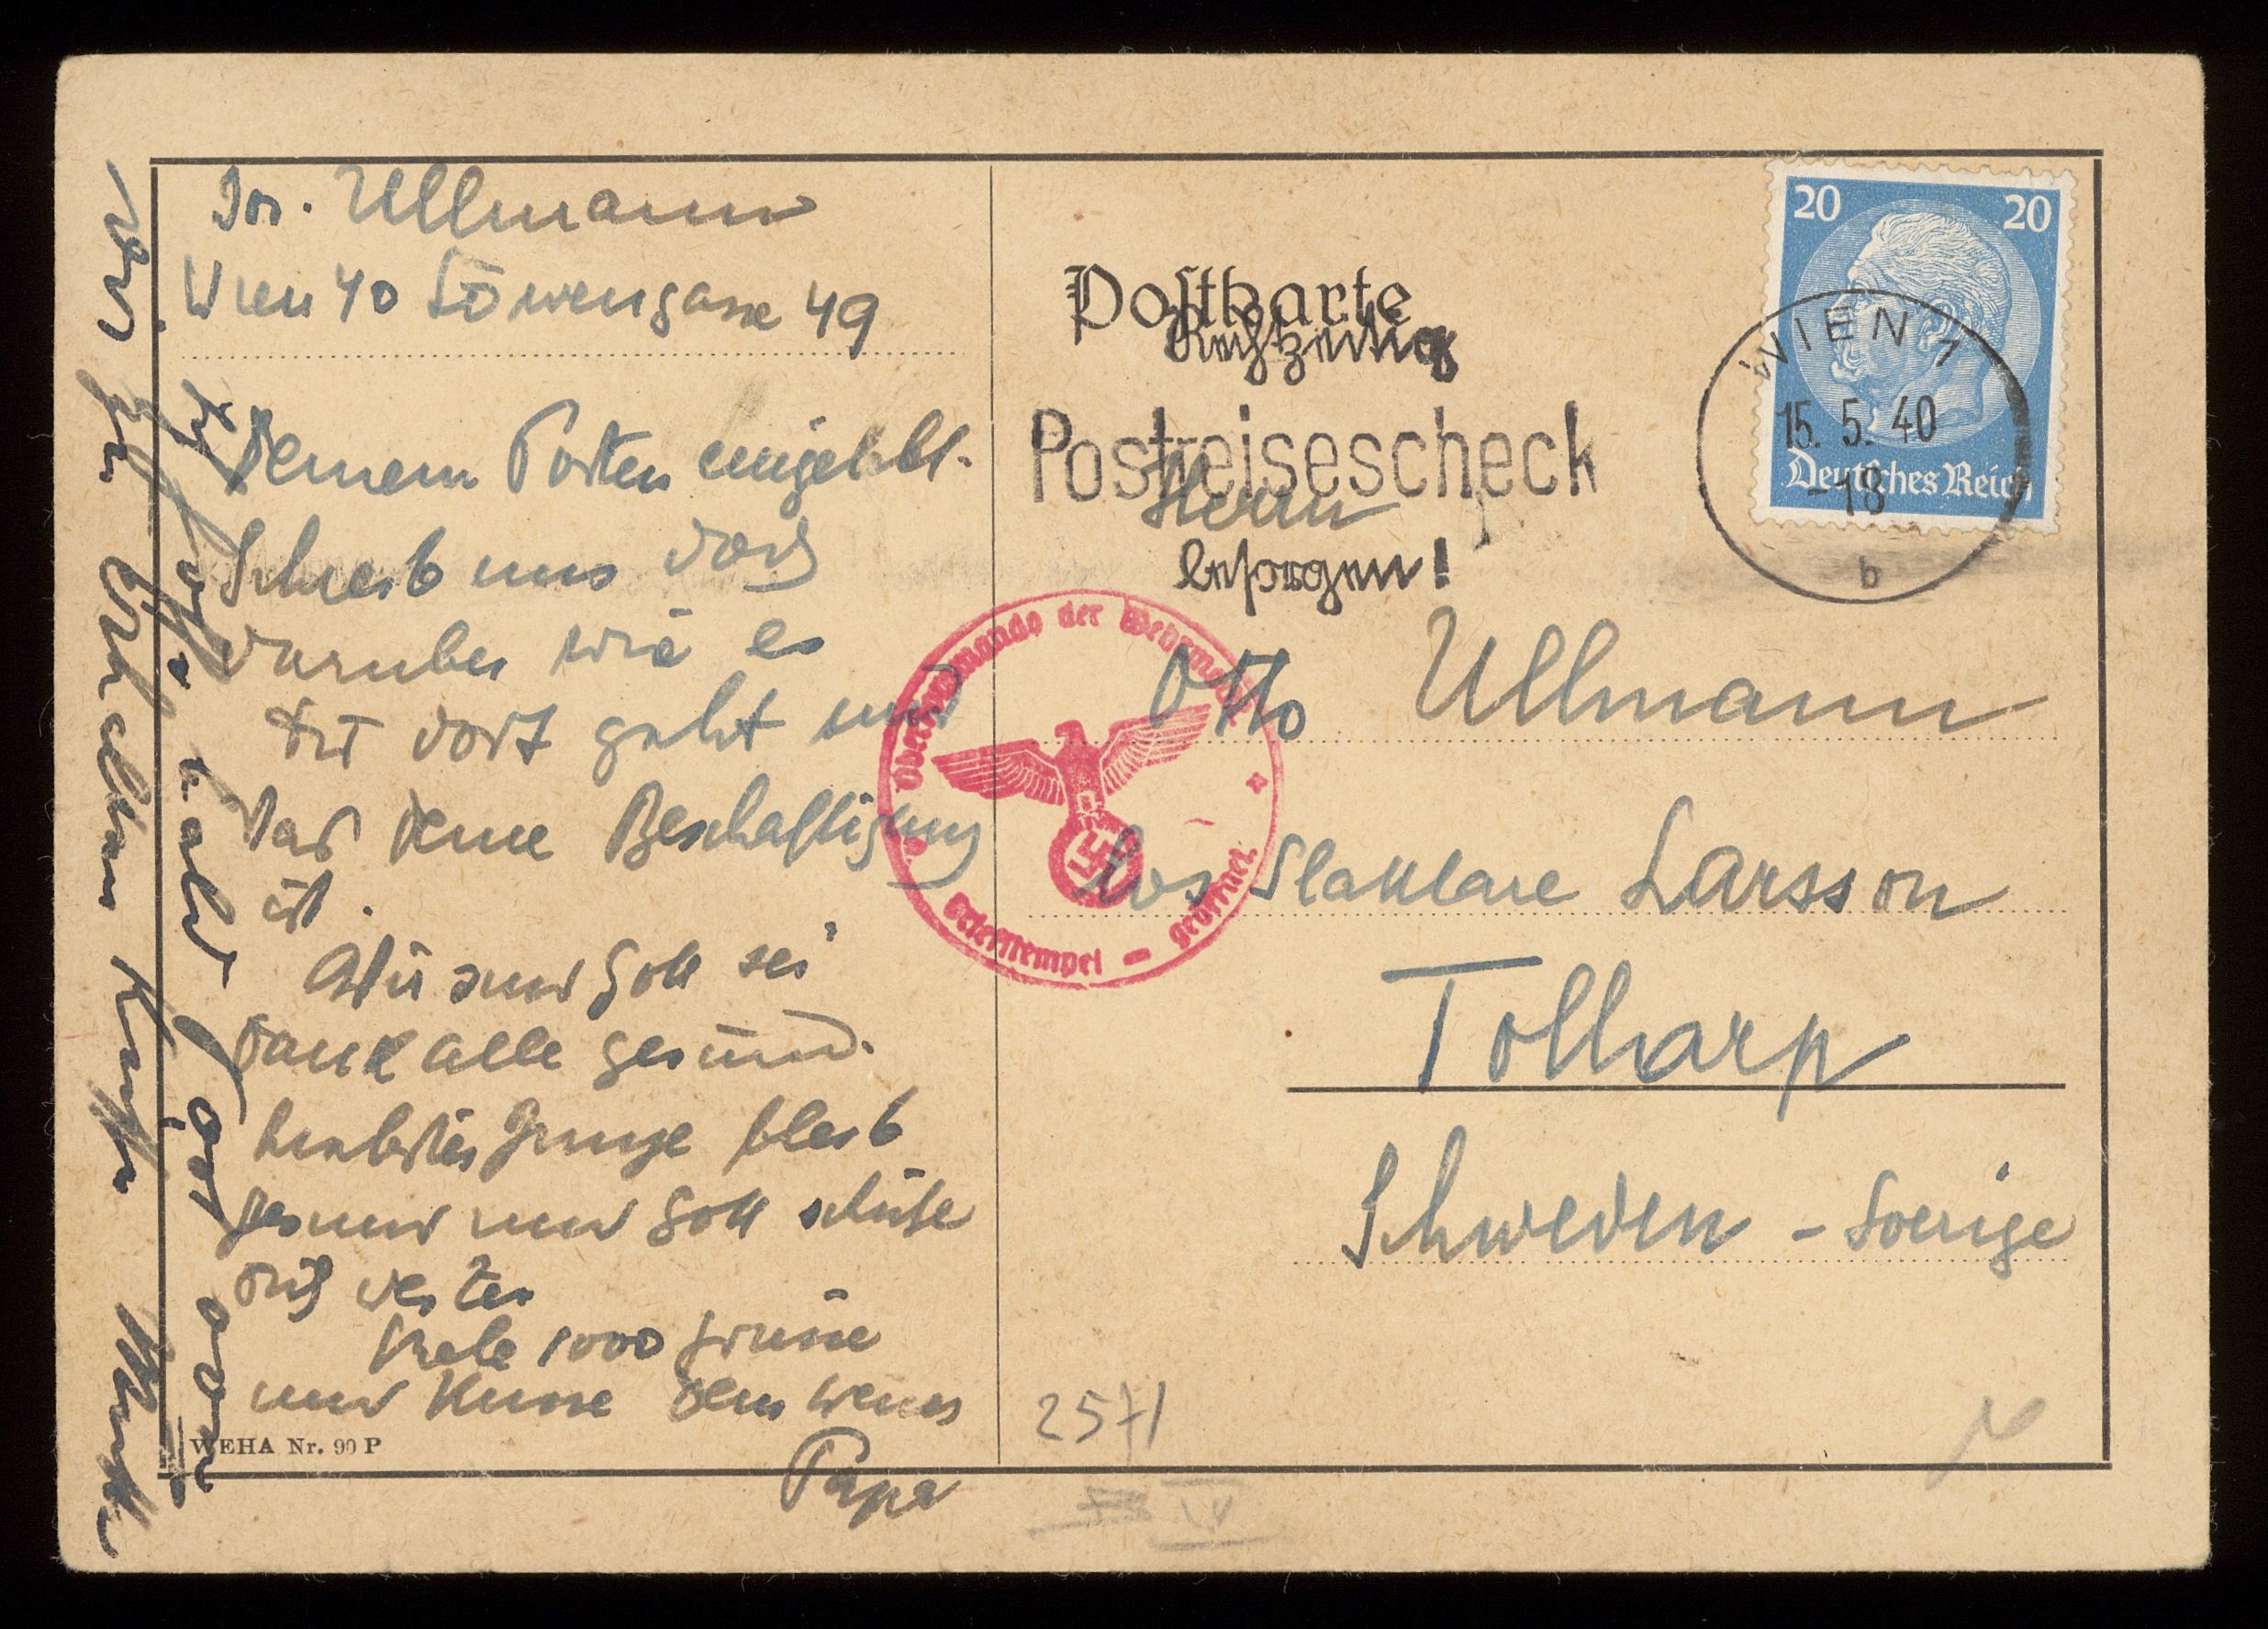 Jos. Ullmann
Wien 40 Löwengasse 49
Deinem Posten eingelebt.
Schreib uns doch
darüber wie es
dir dort geht und
was deine Beschäftigung
ist.
Wir sind Gott sei
dank alle gesund.
Liebster Junge bleib
gesund und Gott schütze
dich weiter
Viele 1000 Grüsse
und Küsse dein
Papa
WEHA Nr. 90 P
Postkarte
Rechtzeitig
Postreisescheck
besorgen!
Herrn
Otto Ullmann
Larsson
Tollarp
Schweden - Sverige
20 20
Deutsches Reich
WIEN 1
15. 5. 40
-18
b
Oberkommando der Wehrmacht
geöffnet
2571